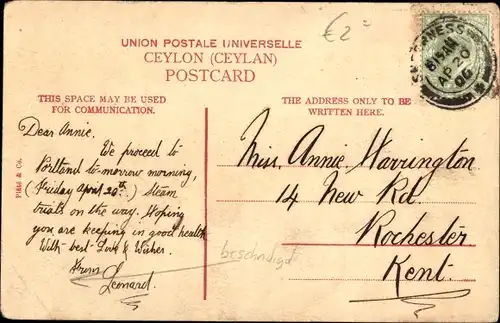 €2=
UNION POSTALE UNIVERSELLE
CEYLON (CEYLAN)
POSTCARD
THIS SPACE MAY BE USED
FOR COMMUNICATION.
THE ADDRESS ONLY TO BE
WRITTEN HERE.
8.15 AM
AP 20
06
Dear Annie.
We proceed to
Portland to-morrow morning,
(Friday April 20th.) steam
trials on the way. Hoping
you are keeping in good health
With best Love & Wishes.
From
Leonard.
Plâté & Co.
Miss. Annie Warrington
14 New Rd.
Rochester
Kent.
beschadigt